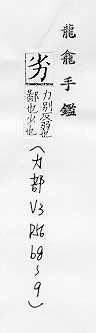 龍龕手鑑
劣 力別反弱也
鄙也少也
(力部 V3 68~9)